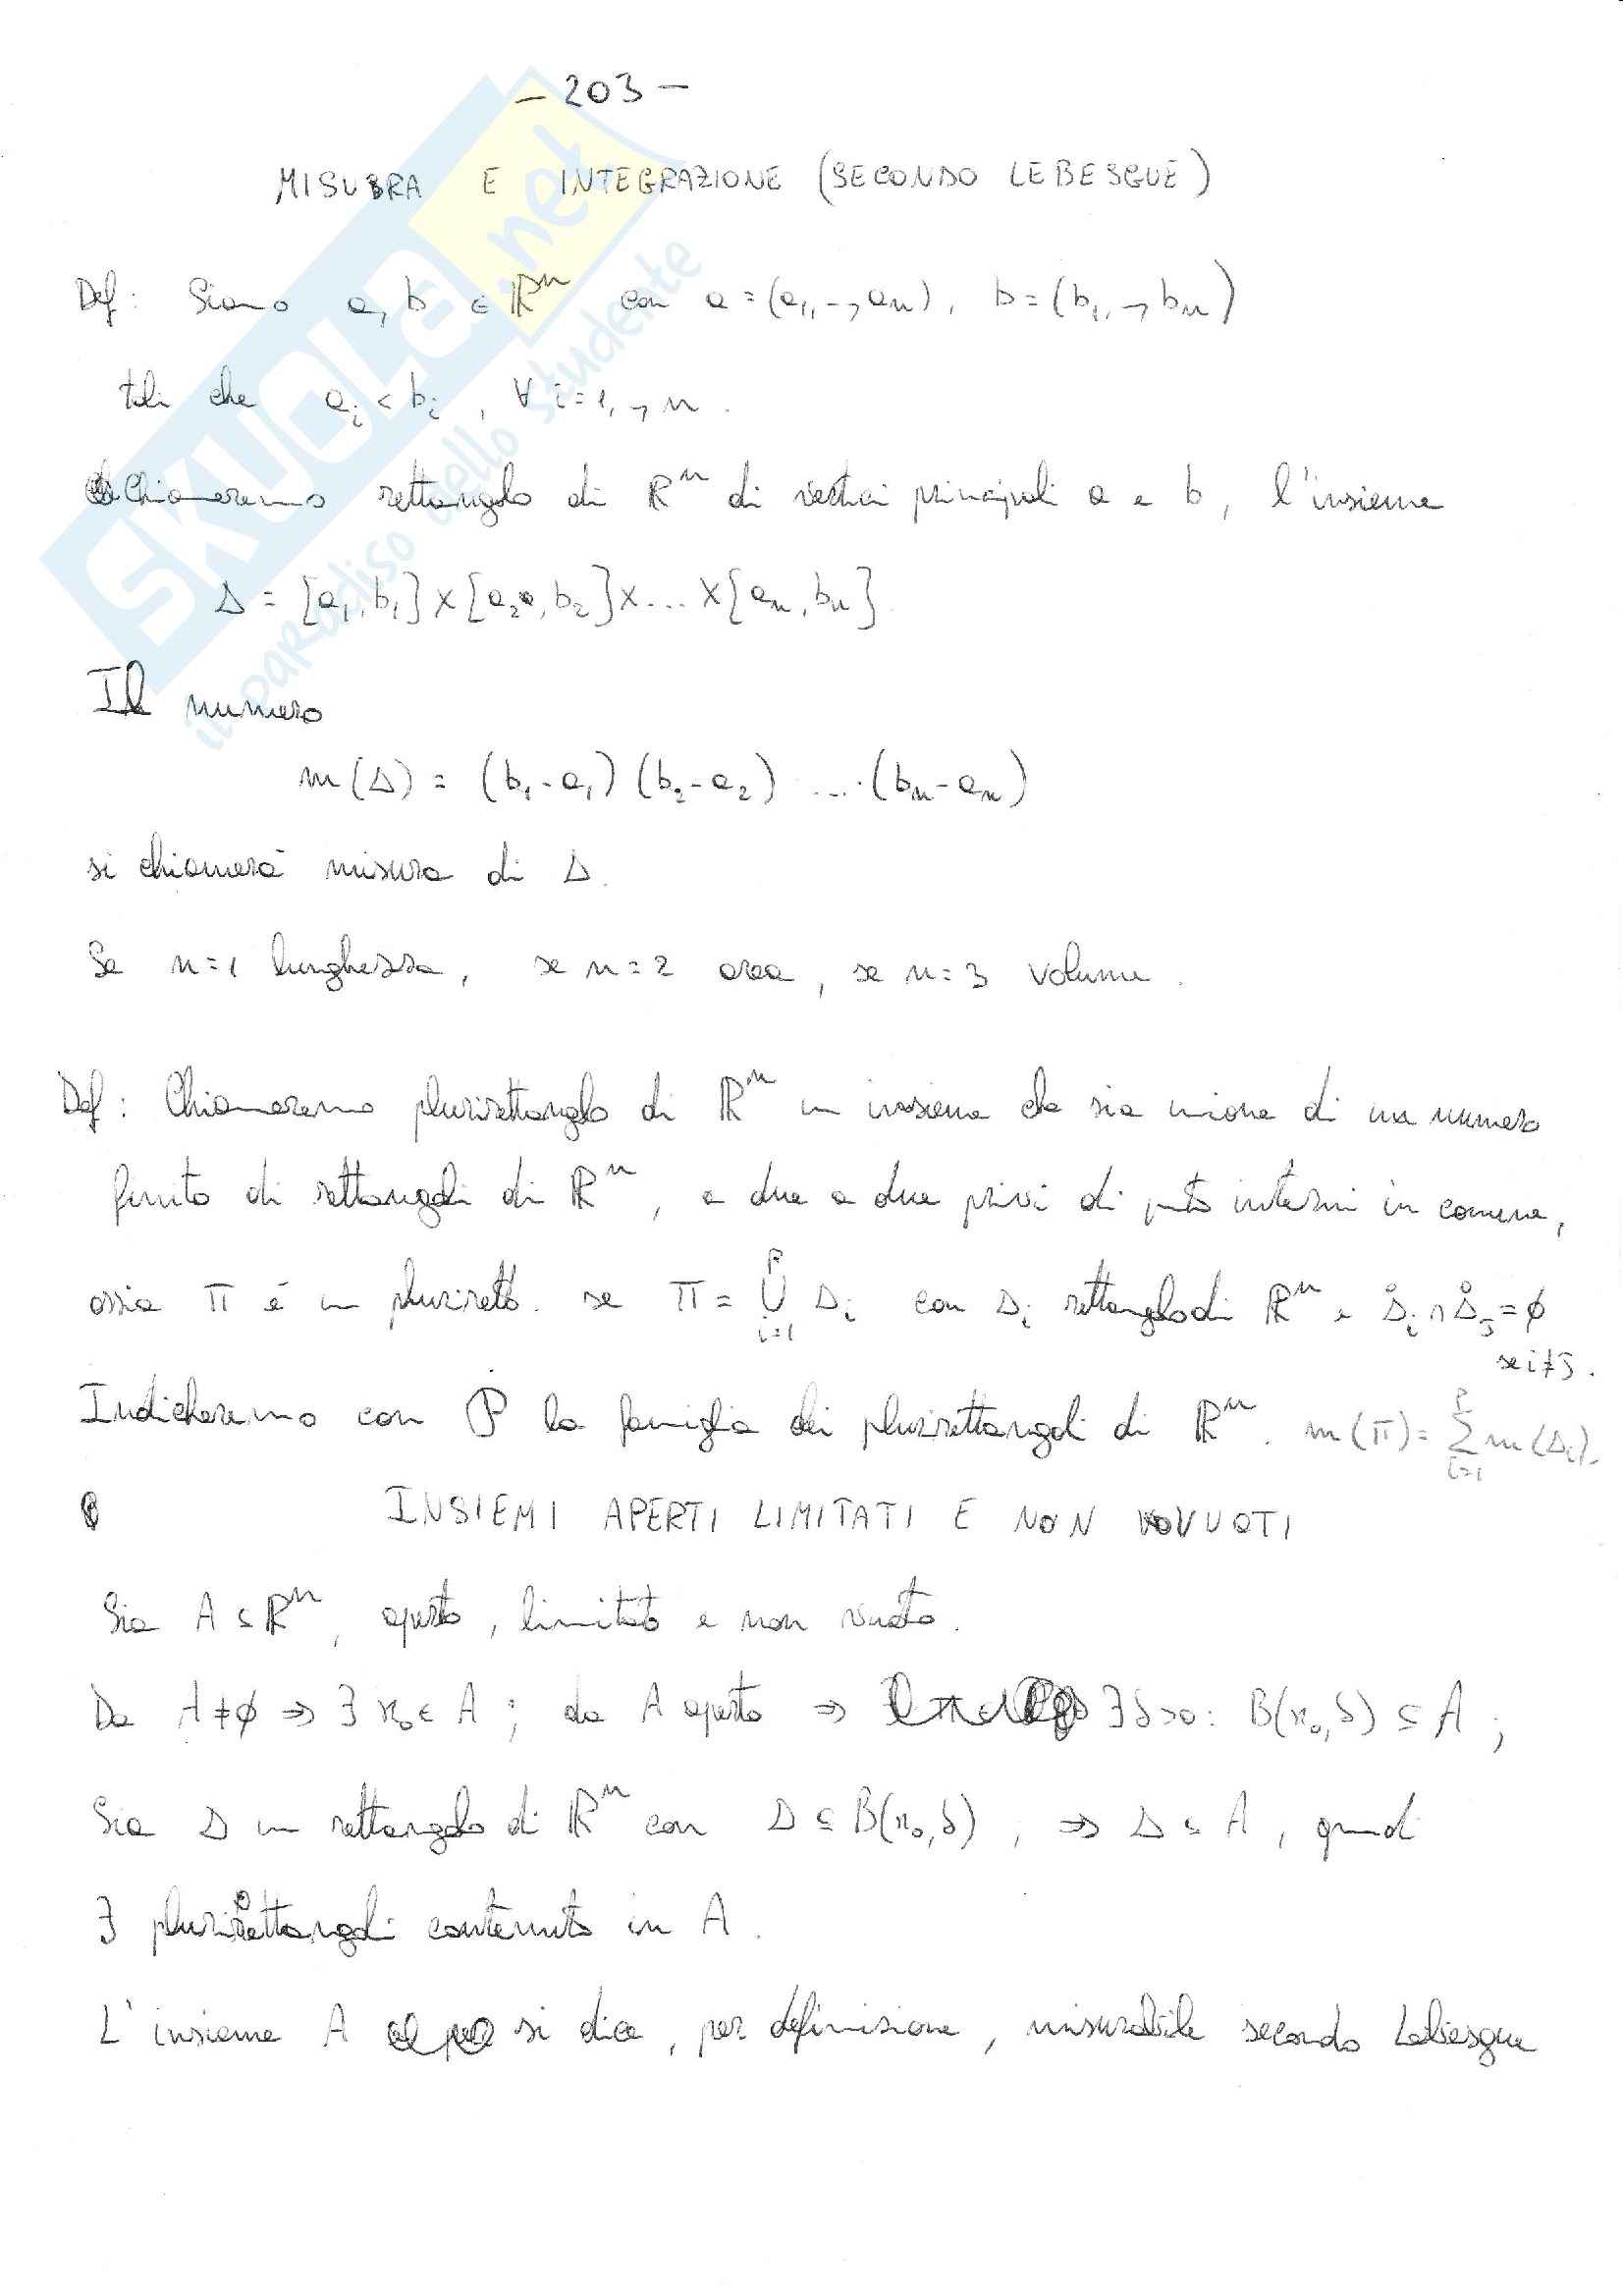 - 203 -
MISURA E INTEGRAZIONE (SECONDO LEBESGUE)
Def: Siano a, b ∈ ℝⁿ con a = (a₁, → aₙ), b = (b₁, → bₙ)
tali che aᵢ < bᵢ, ∀ i = 1, → n.
Chiameremo rettangolo di ℝⁿ di vertici principali a e b, l'insieme
Δ = [a₁, b₁] × [a₂, b₂] × ... × [aₙ, bₙ]
Il numero
m(Δ) = (b₁ - a₁) (b₂ - a₂) .... (bₙ - aₙ)
si chiamerà misura di Δ.
Se n = 1 lunghezza, se n = 2 area, se n = 3 volume.
Def: Chiameremo plurirettangolo di ℝⁿ un insieme che sia unione di un numero
finito di rettangoli di ℝⁿ, a due a due privi di punti interni in comune,
ossia Π è un plurirett. se Π = ⋃ᵢ₌₁ᵖ Δᵢ con Δᵢ rettangolo di ℝⁿ e Δ̊ᵢ ∩ Δ̊ⱼ = ∅
se i ≠ j.
Indicheremo con P la famiglia dei plurirettangoli di ℝⁿ. m(Π) = Σᵢ₌₁ᵖ m(Δᵢ).
INSIEMI APERTI LIMITATI E NON VUOTI
Sia A ⊆ ℝⁿ, aperto, limitato e non vuoto.
Da A ≠ ∅ ⇒ ∃ x₀ ∈ A; da A aperto ⇒ ∃ δ > 0: B(x₀, δ) ⊆ A;
Sia Δ un rettangolo di ℝⁿ con Δ ⊆ B(x₀, δ), ⇒ Δ ⊆ A, quindi
∃ plurirettangoli contenuti in A.
L'insieme A si dice, per definizione, misurabile secondo Lebesgue
SKUOLA.net
il paradiso dello studente